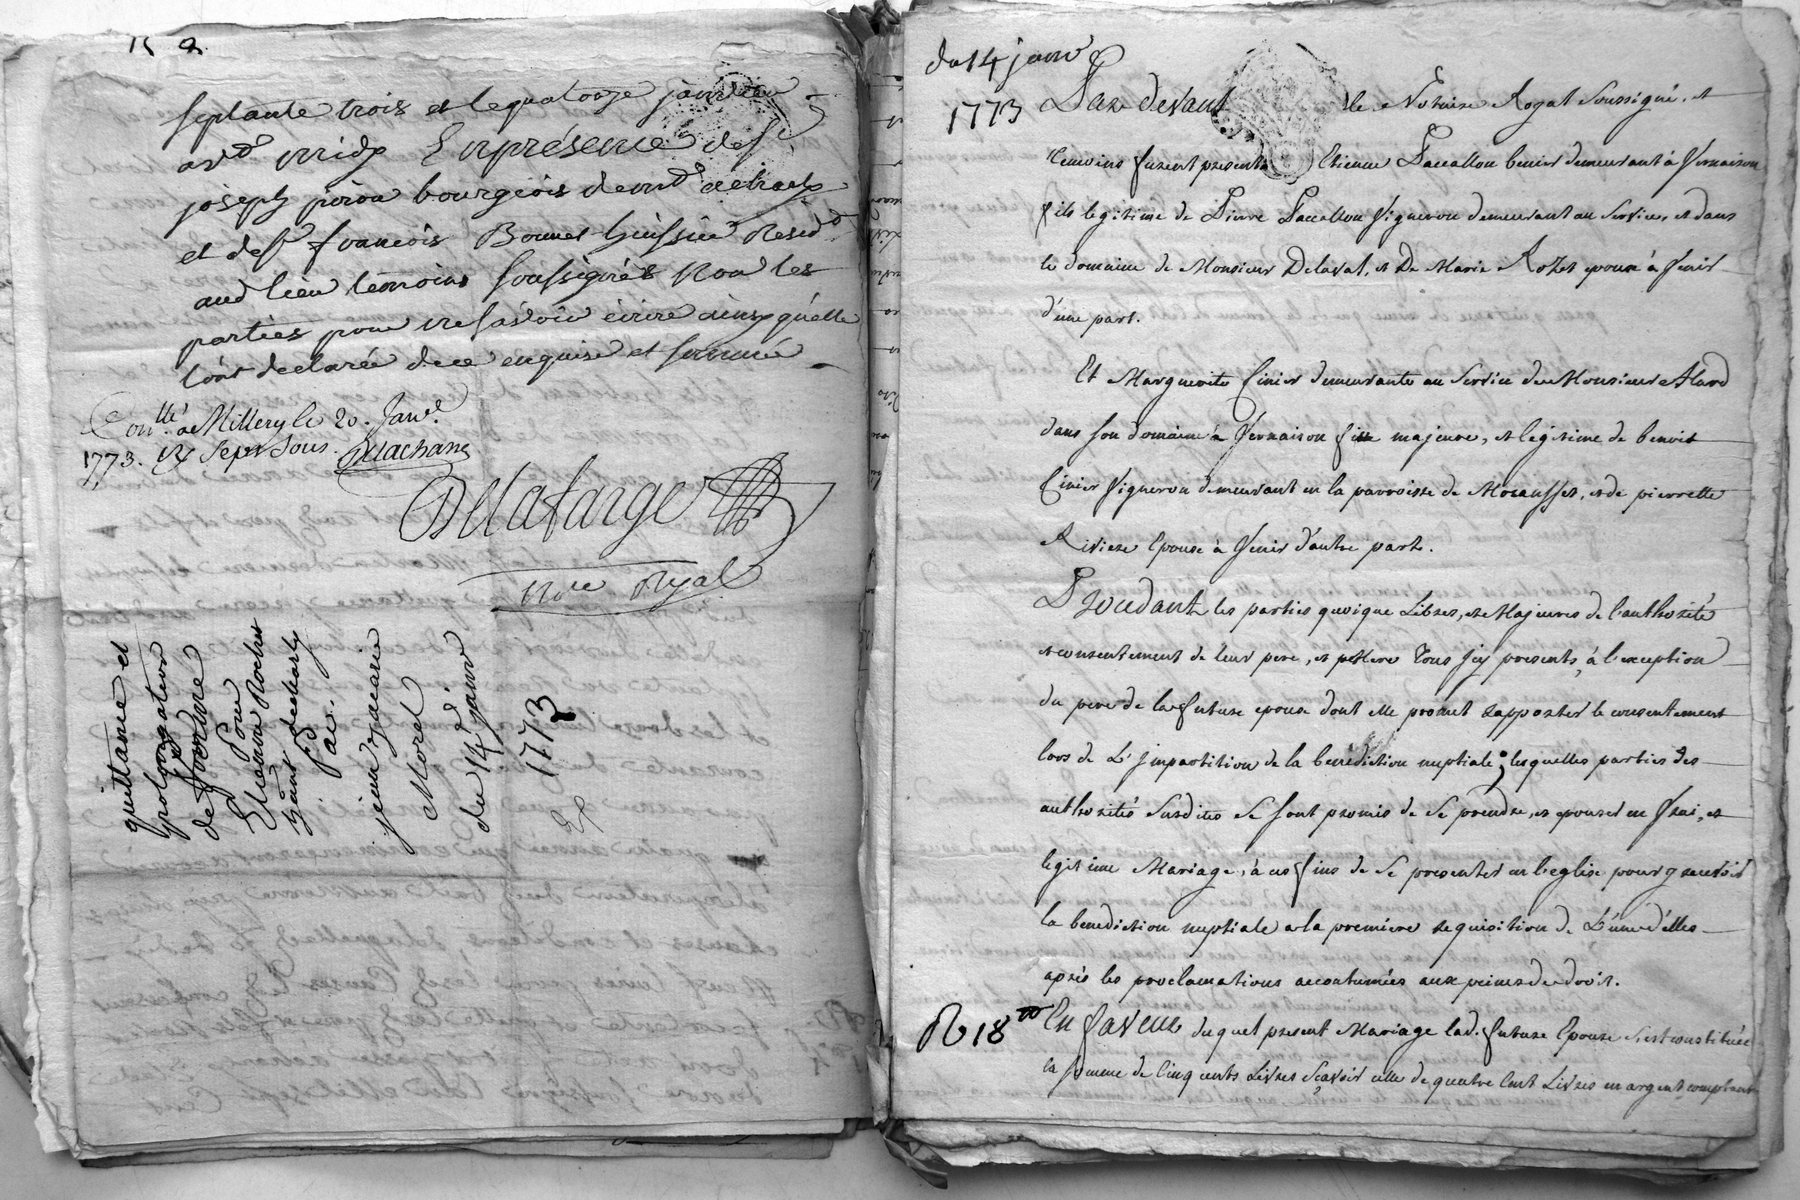 septante trois et lequatorze janvier
avd midy En présence de sr
joseph piron bourgeois demt
et de sr francois Bonnet huissier Residt
aud lieu temoins soussignés Non les
parties pour ne sávoir écrire ainsy quélle
lónt declarée de ce enquise et sommée
Conllé a Millery le 20. Janv.
1773. Sept sous. Delachans
Delafarge
Nore Royal
quittance et
prolongation
de ferme
Pour
Etienne Rochet
jeune zacarie
Morel
du 14e janvr
1773
du 14 janvr
1773 Par devant le Notaire Royal Soussigné, et
temoins furent presents Etienne Paccallon benier demeurant à Vernaison
fils legitime de Pierre Paccallon Vigneron demeurant au Service, et dans
le domaine de Monsieur Delaval, et De Marie Rozet epoux à Venir
d'une part.
Et Marguerite Cinier demeurante au Service de Monsieur Alard
dans son domaine à Vernaison fille majeure, et legitime de benoit
Cinier Vigneron demeurant en la parroisse de Mornant, et de pierrette
Riviere Epouse à Venir d'autre part.
Procedant les parties quoique Libres, et Majeures de l'authorité
et consentement de leur pere, et Mere Tous icy presents, à l'exception
du pere de la future epouse dont elle promet rapporter le consentement
lors de L'Impartition de la benediction nuptiale; lesquelles parties des
authorités Susdites Se sont promis de Se prendre, et epouser en Vrai, et
legitime Mariage, à ces fins de Se presenter en l'eglise pour y recevoir
la benediction nuptiale a la premiere requisition de L'une d'elles
après les proclamations accoutumées aux peines de droit.
R 18 En faveur duquel present Mariage lad. future Epouse s'est constituée
la somme de Cinq cents Livres Sçavoir celle de quatre Cent Livres en argent comptant